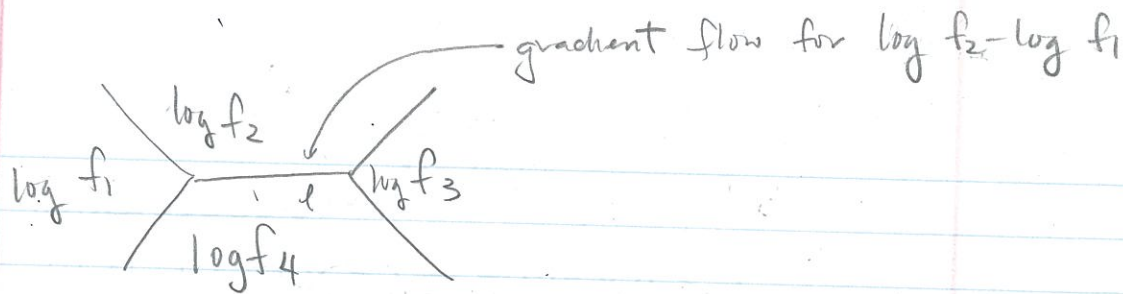 gradient flow for log f₂ - log f₁
log f₂
log f₁
log f₃
l
log f₄